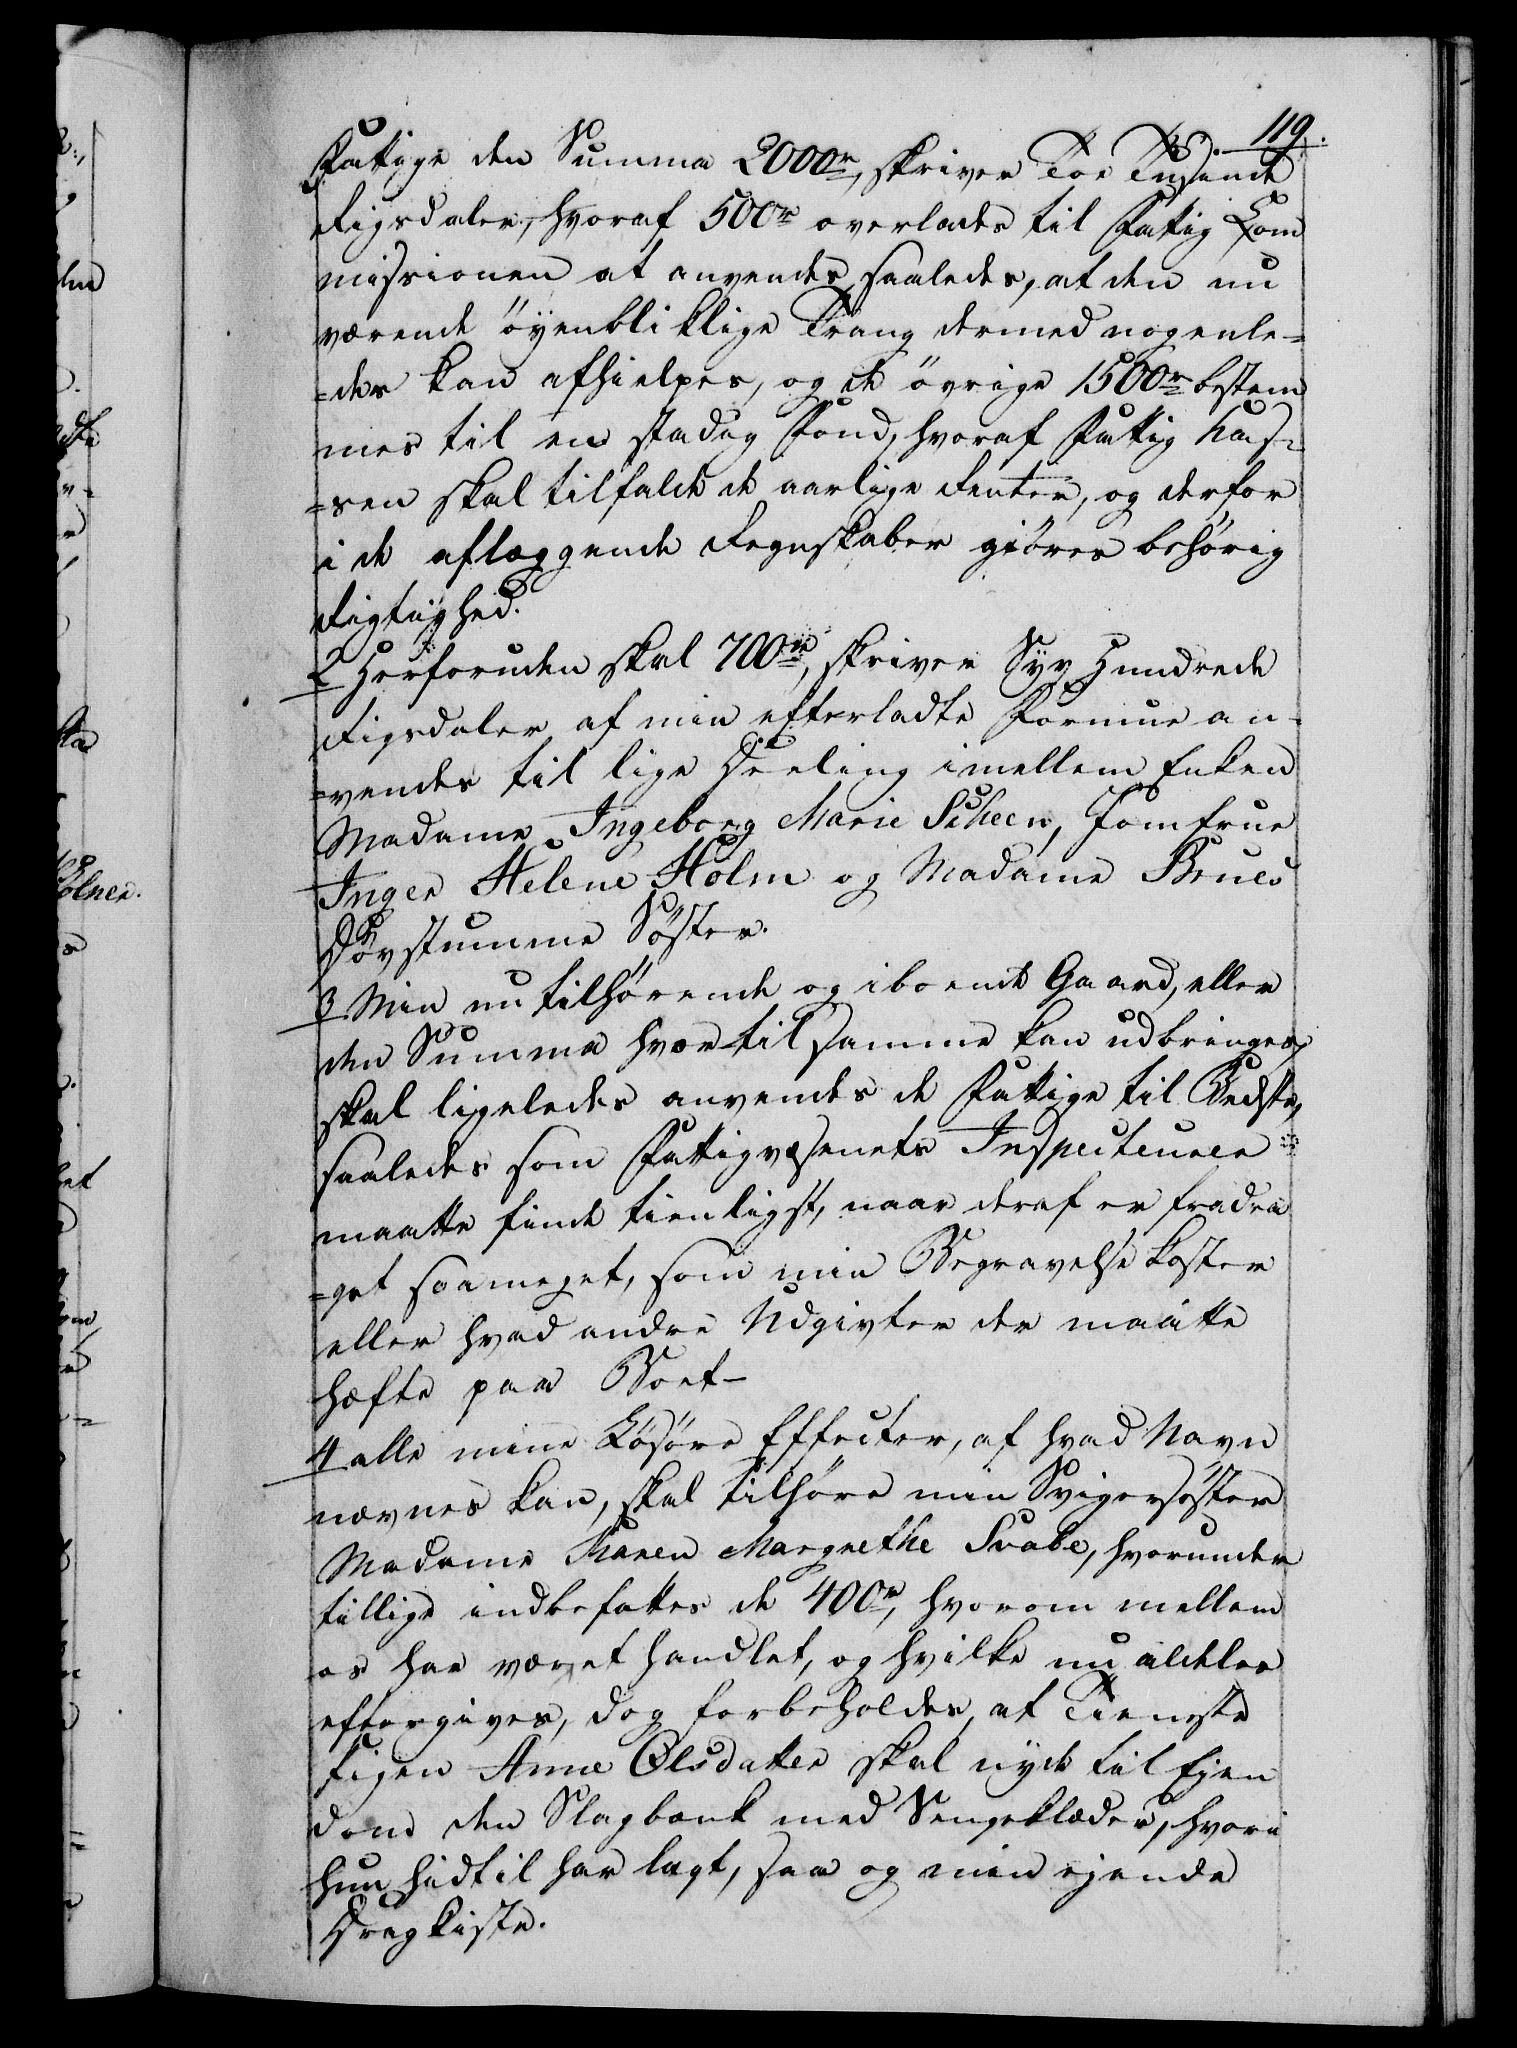 119.
Fattige den Summa 2000rd, skriver Toe Tusende
Rigsdaler, hvoraf 500rd overlades til Fattig Com
missionen at anvendes saaledes, at den nu
værende öyenbliklige Trang dermed nogenle=
=des kan afhielpes, og de övrige 1500rd bestem
mes til en stadig Fond, hvoraf Fattig Cas=
=sen skal tilfalde de aarlige Renter, og derfor
i de aflæggende Regnskaber giöres behörig
Rigtighed.
2 Herforuden skal 700rd, skriver Syv Hundrede
Rigsdaler af min efterladte Formue an=
=vendes til lige Deeling imellem Enken
Madame Ingeborg Marie Scheen, Jomfrue
Inger Helene Holm og Madame Brues
Dövstumme Söster.
3 Min nu tilhörende og iboende Gaard, eller
den Summa hvortil samme kan udbringes,
skal ligeledes anvendes de Fattige til Bedste,
saaledes som Fattigvæsenets Inspecteurer
maatte finde tienligst, naar deraf er fradra
=get saameget, som min Begravelse koster
eller hvad andre Udgivter der maatte
hæfte paa Boet-
4 alle mine Lösöre Effecter, af hvad Navn
nævnes kan, skal tilhöre min Svigersöster
Madame Maren Margrethe Svabe, hvorunder
tillige indbefattes de 400rd, hvorom mellem
os har været handlet, og hvilke nu aldeles
eftergives, dog forbeholdes, at Tieneste
Pigen Anne Olsdatter skal nyde til Ejen
dom den Slagbank med Sengeklæder, hvori
hun hidtil har lagt, saa og min ejende
Dragkiste.